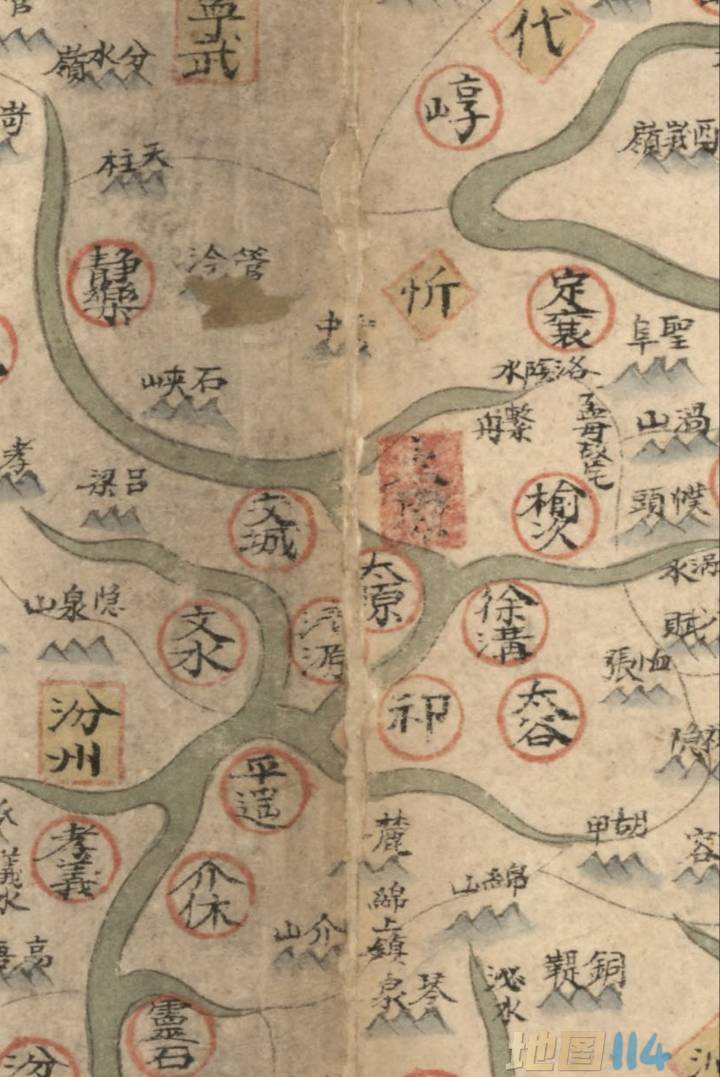 寧武
代
嶺水分
崞
柱天
嶺
靜樂
涔管
忻
定襄
阜聖
峽石
水陰洛
舟繫
孟母故宅
山渦
孝
梁吕
文城
榆次
頭幞
太原
水涡
山泉隐
文水
徐溝
汾州
祁
太谷
平遥
甲胡
孝義
義水
麓
介休
山綿
山介
綿上鎮
泉琴
沁水
鞮銅
靈石
汾
地图114